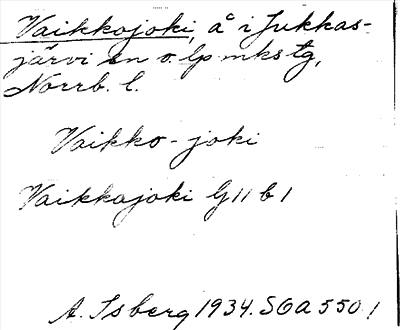 Vaikkojoki, å i Jukkas-
järvi sn o. lpmkstg,
Norrb. l.
Vaikko-joki
Vaikkajoki G 11 b 1
A. Isberg 1934. SOA 550 1